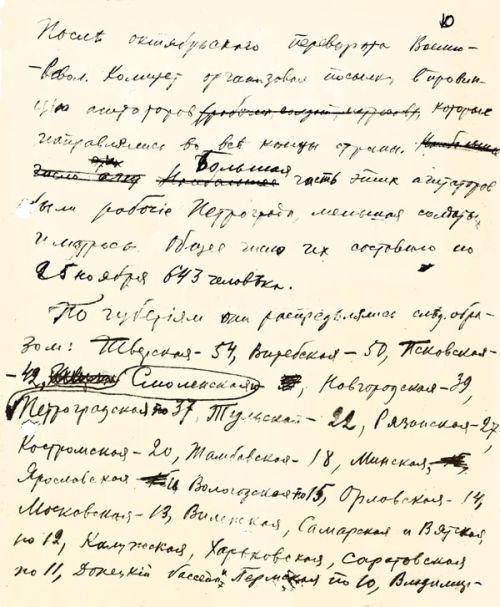 10
Послѣ октябрьскаго переворота Воинно-
-Револ. Комитет организовал посылку в провин-
цiю агитаторов (рабочих, солдат, матросов), которые
направлялись во всѣ концы страны.
этих Большая
число часть этих агитаторов
были рабочiе Петрограда, меньшая солдаты
и матросы. Общее число их составило по
25 ноября 643 человѣка.
По губернiям они распредѣлялись слѣд. обра-
зом: Тверская – 54, Витебская – 50, Псковская –
– 42, Смоленская и , Новгородская – 39,
Петроградская по 37, Тульская – 22, Рязанская – 27,
Костромская – 20, Тамбовская – 18, Минская,
Ярославская и Вологодская по 15, Орловская – 14,
Московская – 13, Виленская, Самарская и Вятская
по 12, Калужская, Харьковская, Саратовская
по 11, Донецкiй бассейн и Пермская по 10, Владимiр-